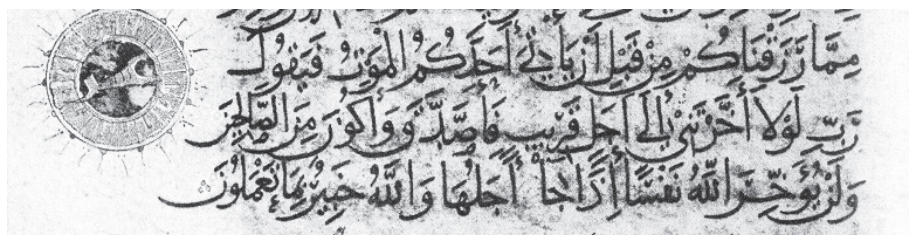 مِمَّا رَزَقْنَاكُمْ مِنْ قَبْلِ أَنْ يَأْتِيَ أَحَدَكُمُ الْمَوْتُ فَيَقُولَ
رَبِّ لَوْلَا أَخَّرْتَنِي إِلَى أَجَلٍ قَرِيبٍ فَأَصَّدَّقَ وَأَكُونَ مِنَ الصَّالِحِينَ
وَلَنْ يُؤَخِّرَ اللَّهُ نَفْسًا إِذَا جَاءَ أَجَلُهَا وَاللَّهُ خَبِيرٌ بِمَا تَعْمَلُونَ